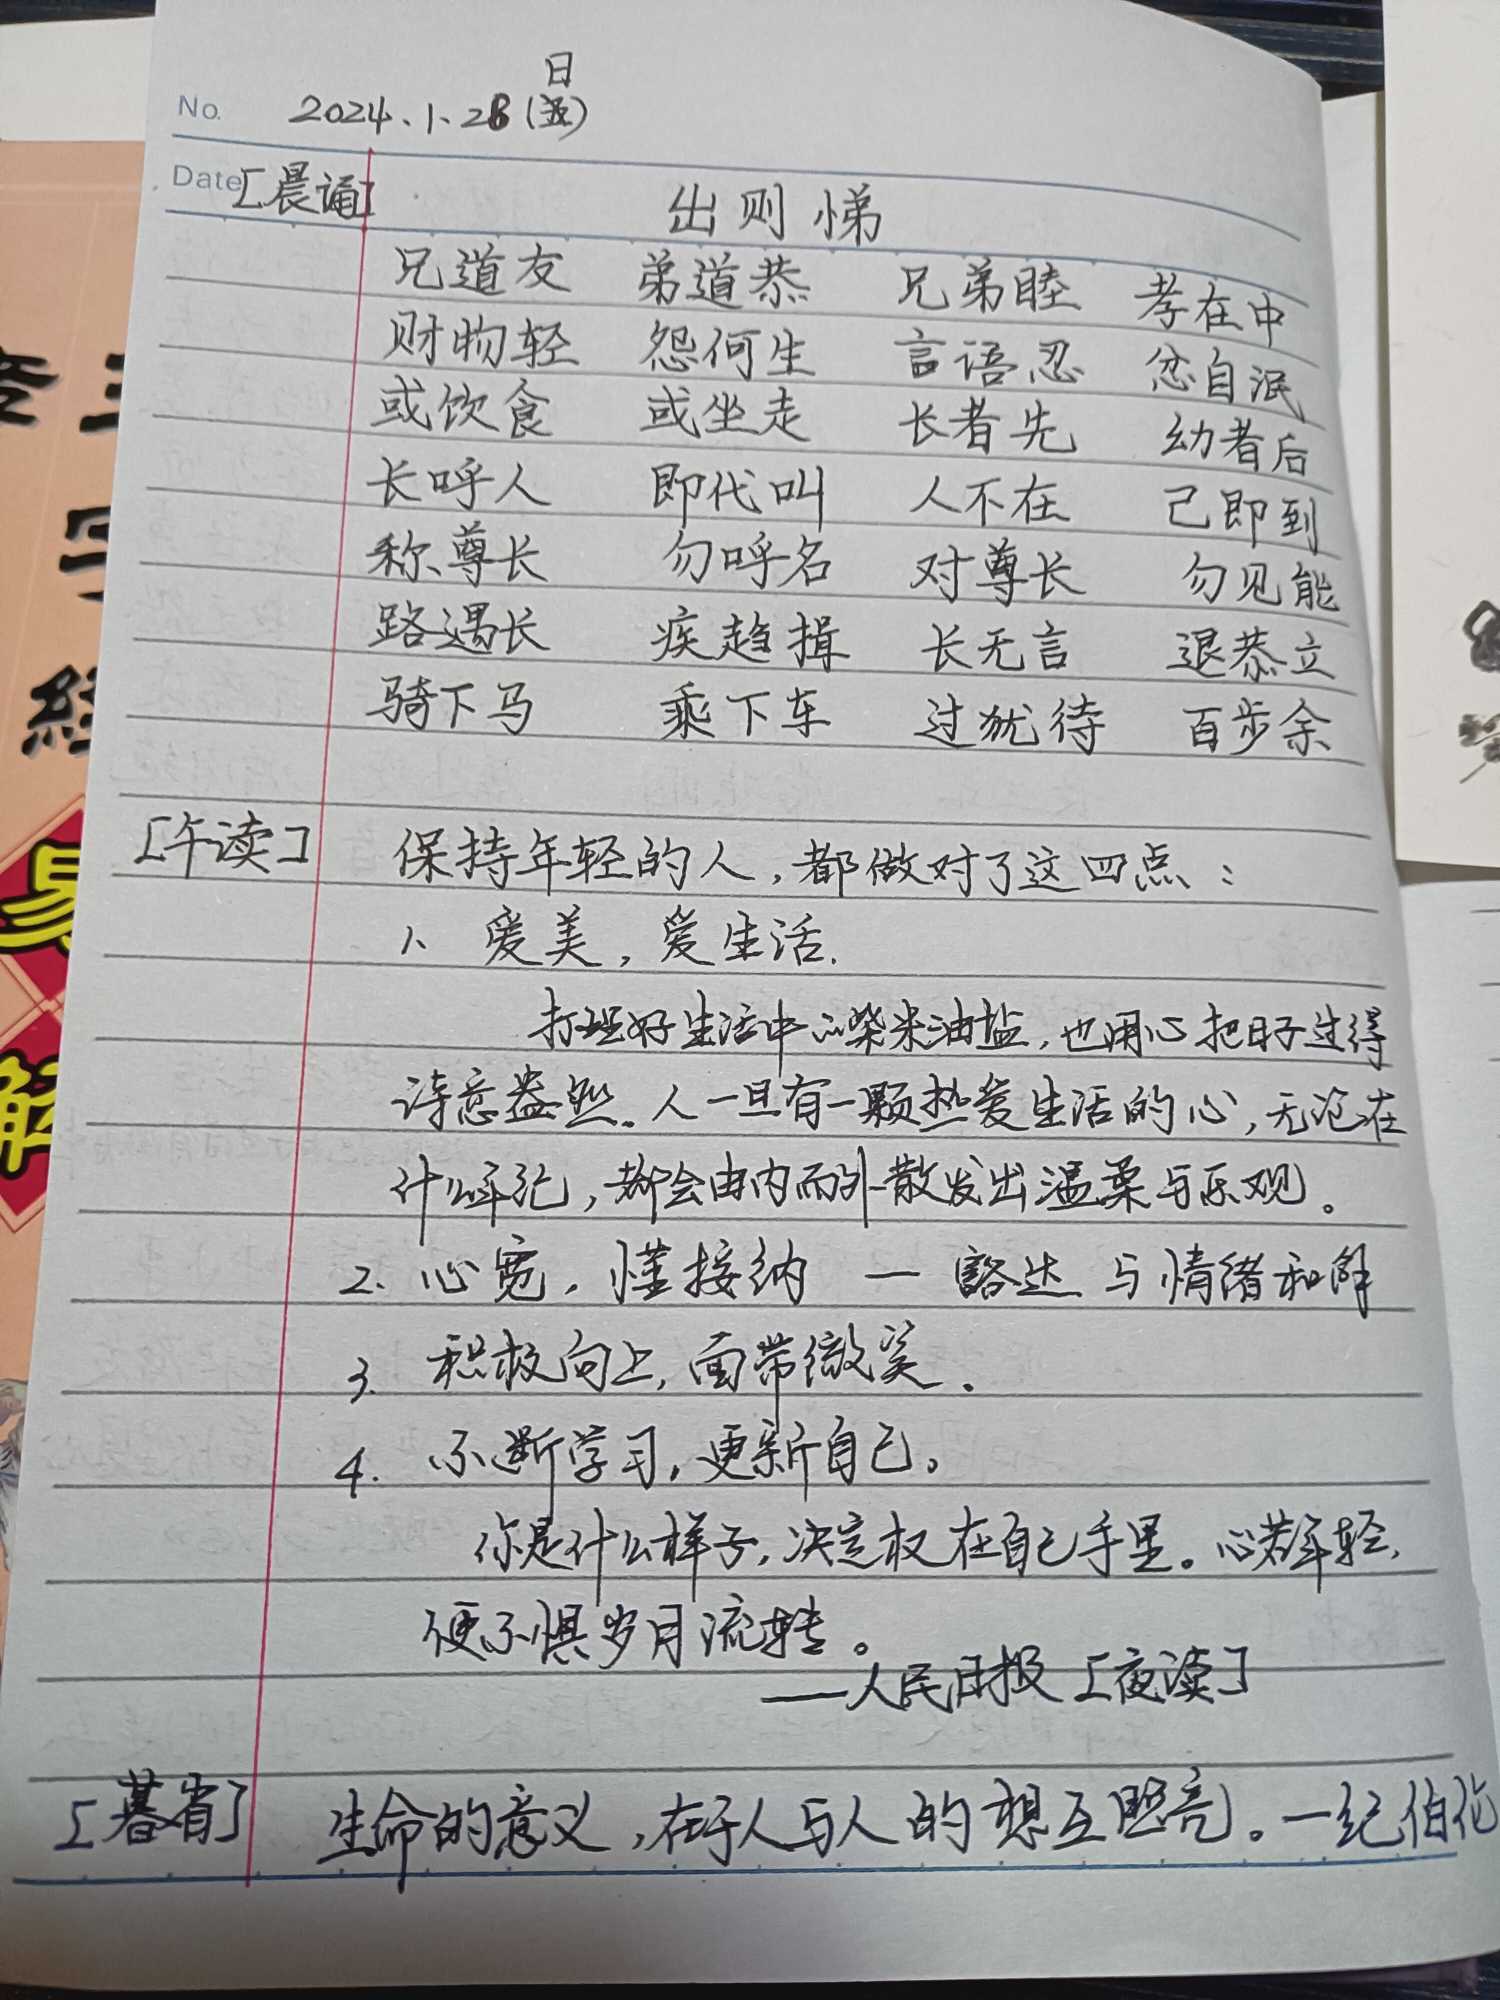 No. 2024.1.28(日)
Date [晨诵] 出则悌
兄道友 弟道恭 兄弟睦 孝在中
财物轻 怨何生 言语忍 忿自泯
或饮食 或坐走 长者先 幼者后
长呼人 即代叫 人不在 己即到
称尊长 勿呼名 对尊长 勿见能
路遇长 疾趋揖 长无言 退恭立
骑下马 乘下车 过犹待 百步余
[午读] 保持年轻的人，都做对了这四点：
1、爱美，爱生活.
打理好生活中的柴米油盐，也用心把日子过得
诗意盎然。人一旦有一颗热爱生活的心，无论在
什么年纪，都会由内而外散发出温柔与乐观。
2. 心宽，懂接纳 — 豁达 与情绪和解
3. 积极向上，面带微笑.
4. 不断学习，更新自己。
你是什么样子，决定权在自己手里。心若年轻，
便不惧岁月流转。
——人民日报 [夜读]
[暮省] 生命的意义，在于人与人的想互照亮。—纪伯伦
三
字
經
易
解